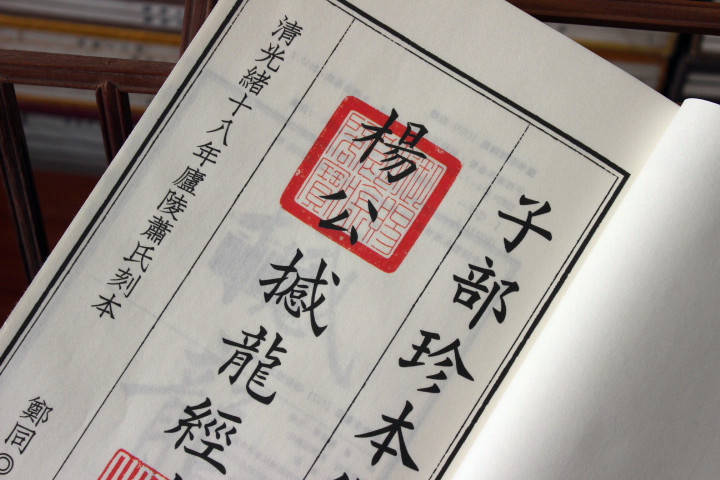 子部珍本
楊公撼龍經
清光緒十八年廬陵蕭氏刻本
鄭同◎